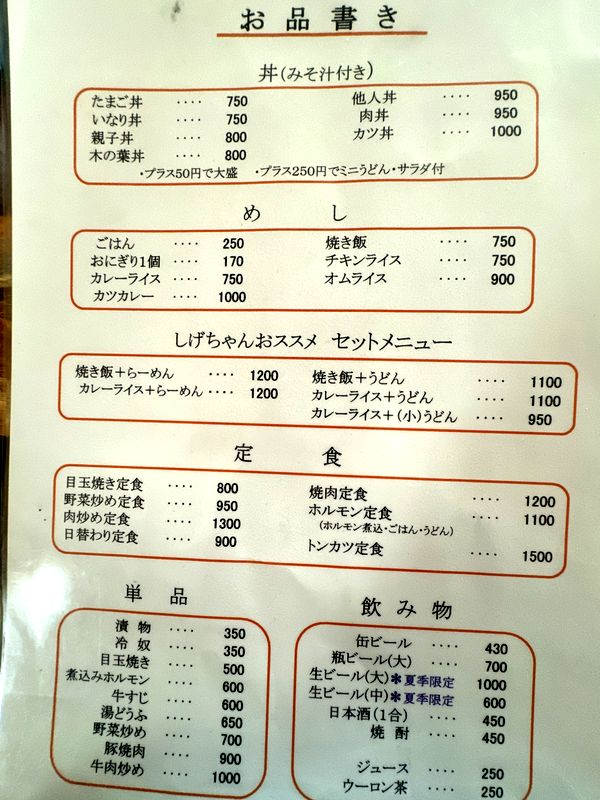 お品書き
丼(みそ汁付き)
たまご丼 ‥‥ 750
いなり丼 ‥‥ 750
親子丼 ‥‥ 800
木の葉丼 ‥‥ 800
他人丼 ‥‥ 950
肉丼 ‥‥ 950
カツ丼 ‥‥ 1000
・プラス50円で大盛 ・プラス250円でミニうどん・サラダ付
めし
ごはん ‥‥ 250
おにぎり1個 ‥‥ 170
カレーライス ‥‥ 750
カツカレー ‥‥ 1000
焼き飯 ‥‥ 750
チキンライス ‥‥ 750
オムライス ‥‥ 900
しげちゃんおススメ セットメニュー
焼き飯+らーめん ‥‥ 1200
カレーライス+らーめん ‥‥ 1200
焼き飯+うどん ‥‥ 1100
カレーライス+うどん ‥‥ 1100
カレーライス+(小)うどん ‥‥ 950
定食
目玉焼き定食 ‥‥ 800
野菜炒め定食 ‥‥ 950
肉炒め定食 ‥‥ 1300
日替わり定食 ‥‥ 900
焼肉定食 ‥‥ 1200
ホルモン定食 ‥‥ 1100
(ホルモン煮込・ごはん・うどん)
トンカツ定食 ‥‥ 1500
単品
漬物 ‥‥ 350
冷奴 ‥‥ 350
目玉焼き ‥‥ 500
煮込みホルモン ‥‥ 600
牛すじ ‥‥ 600
湯どうふ ‥‥ 650
野菜炒め ‥‥ 700
豚焼肉 ‥‥ 900
牛肉炒め ‥‥ 1000
飲み物
缶ビール ‥‥ 430
瓶ビール(大) ‥‥ 700
生ビール(大)＊夏季限定 1000
生ビール(中)＊夏季限定 600
日本酒(1合) ‥‥ 450
焼酎 ‥‥ 450
ジュース ‥‥ 250
ウーロン茶 ‥‥ 250